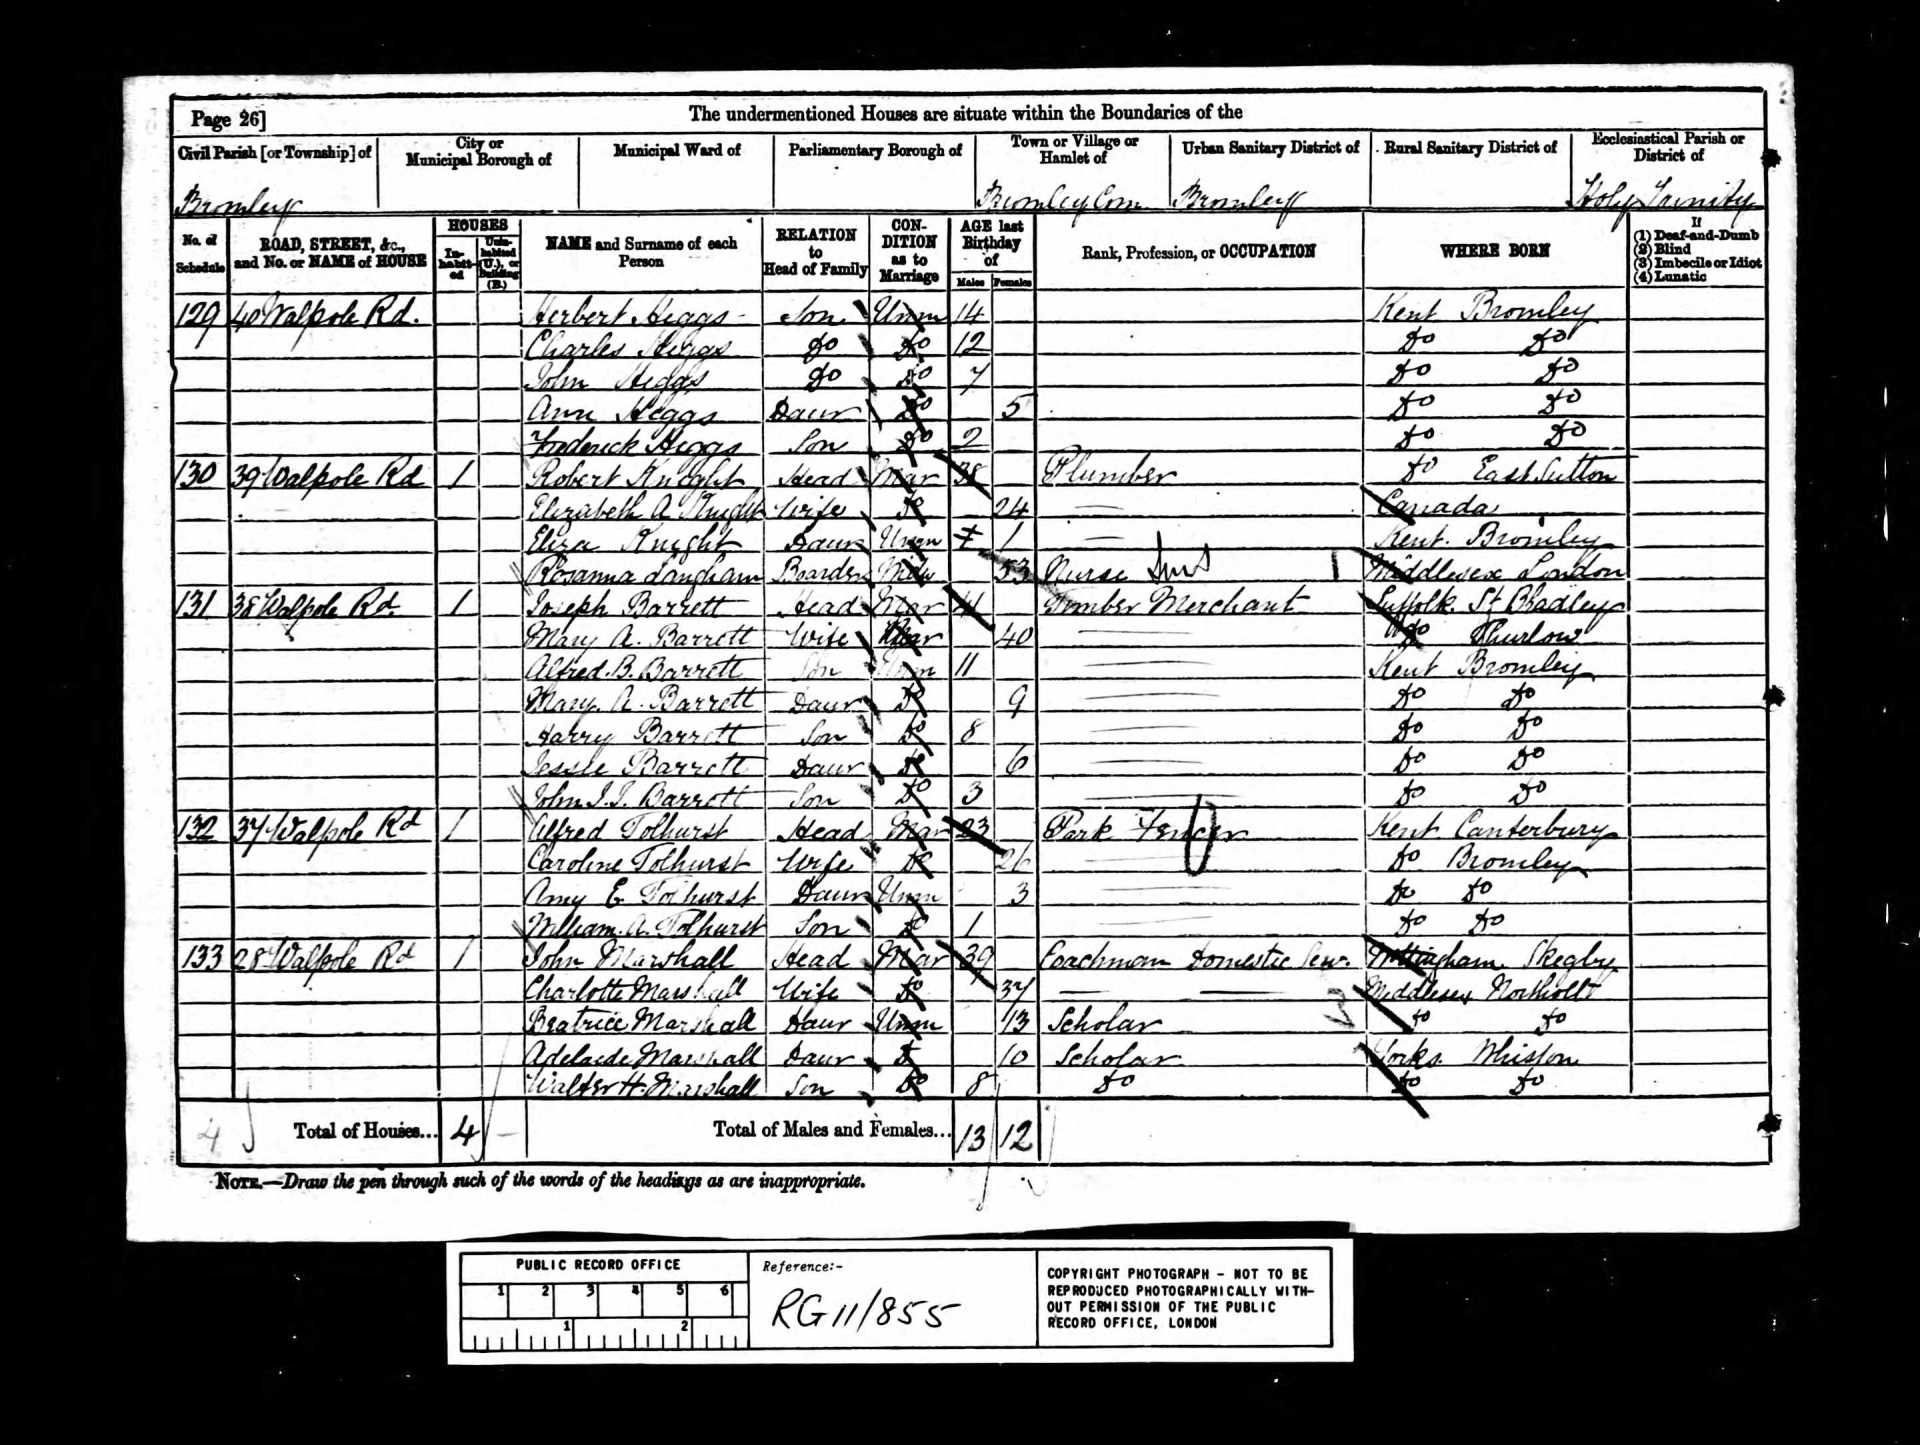 Page 26]
The undermentioned Houses are situate within the Boundaries of the
Civil Parish [or Township] of
City or Municipal Borough of
Municipal Ward of
Parliamentary Borough of
Town or Village or Hamlet of
Urban Sanitary District of
Rural Sanitary District of
Ecclesiastical Parish or District of
Bromley Bromley Com Bromley Holy Trinity
No. of Schedule
ROAD, STREET, &c., and No. or NAME of HOUSE
HOUSES
Inhabited
Uninhabited (U.), or Building (B.)
NAME and Surname of each Person
RELATION to Head of Family
CONDITION as to Marriage
AGE last Birthday of
Males Females
Rank, Profession, or OCCUPATION
WHERE BORN
If
(1) Deaf-and-Dumb
(2) Blind
(3) Imbecile or Idiot
(4) Lunatic
129 40 Walpole Rd. Herbert Higgs Son Unm 14 Kent Bromley
Charles Higgs Do Do 12 Do Do
John Higgs Do Do 7 Do Do
Ann Higgs Daur Do 5 Do Do
Frederick Higgs Son Do 2 Do Do
130 39 Walpole Rd 1 Robert Knight Head Mar 38 Plumber Do East Sutton
Elizabeth A Knight Wife Do 24 Canada
Eliza Knight Daur Unm 1 Kent. Bromley
Rosanna Langham Boarder Wid 53 Nurse Middlesex London
131 38 Walpole Rd. 1 Joseph Barrett Head Mar 41 Timber Merchant Suffolk St Bradley
Mary A. Barrett Wife Mar 40 Do Thurlow
Alfred. B. Barrett Son Unm 11 Kent Bromley
Mary. A. Barrett Daur Do 9 Do Do
Harry Barrett Son Do 8 Do Do
Jessie Barrett Daur Do 6 Do Do
John J. J. Barrett Son Do 3 Do Do
132 37 Walpole Rd 1 Alfred Tolhurst Head Mar 23 Park Fencer Kent Canterbury
Caroline Tolhurst Wife Do 26 Do Bromley
Amy E Tolhurst Daur Unm 3 Do Do
William. A. Tolhurst Son Do 1 Do Do
133 28 Walpole Rd 1 John Marshall Head Mar 39 Coachman Domestic Serv. Nottingham Skegby
Charlotte Marshall Wife Do 37 Middlesex Northolt
Beatrice Marshall Daur Unm 13 Scholar Do Do
Adelaide Marshall Daur Do 10 Scholar Yorks. Whiston
Walter H. Marshall Son Do 8 Do Do Do
4 Total of Houses... 4 – Total of Males and Females... 13 12
NOTE.—Draw the pen through such of the words of the headings as are inappropriate.
PUBLIC RECORD OFFICE
1 2 3 4 5 6
1 2
Reference:-
RG 11/855
COPYRIGHT PHOTOGRAPH - NOT TO BE
REPRODUCED PHOTOGRAPHICALLY WITH-
OUT PERMISSION OF THE PUBLIC
RECORD OFFICE, LONDON